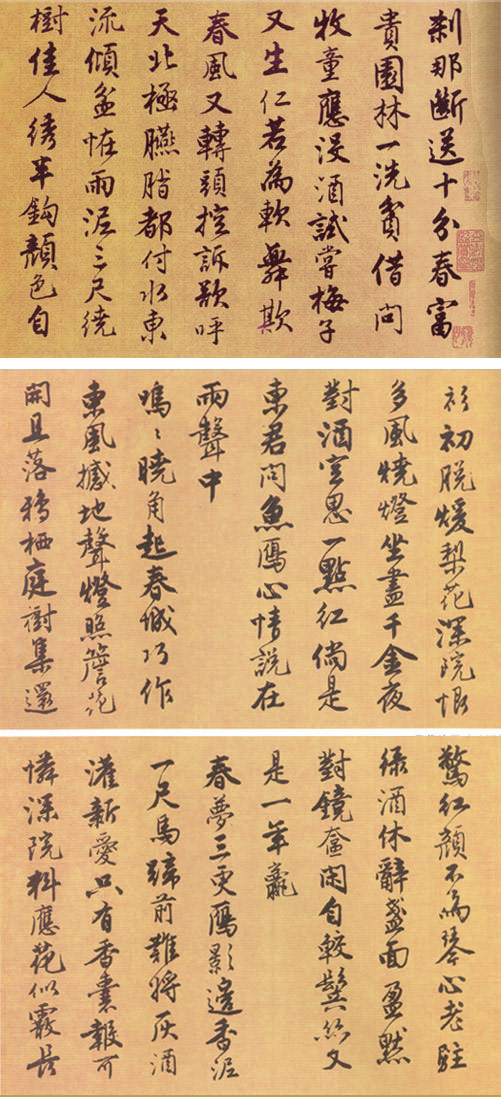 刹那斷送十分春富
貴園林一洗貧借問
牧童應沒酒試嘗梅子
又生仁若為軟舞欺
春風又轉頭控訴欲呼
天北極臙脂都付水東
流傾盆怪雨泥三尺繞
樹佳人绣半鈎顏色自
衫初脫煖梨花深院恨
多風燒燈坐盡千金夜
對酒空思一點紅倘是
東君問魚鴈心情說在
雨聲中
嗚〻曉角起春城巧作
東風撼地聲燈照簷花
開且落鴉栖庭樹集還
驚紅顏不為琴心老駐
綠酒休辭盞面盈默
對鏡奩閑自較鬢絲又
是一年
春夢三更鴈影邊香泥
一尺馬蹄前難將灰酒
灌新愛只有香囊報可
憐深院料應花似霰長